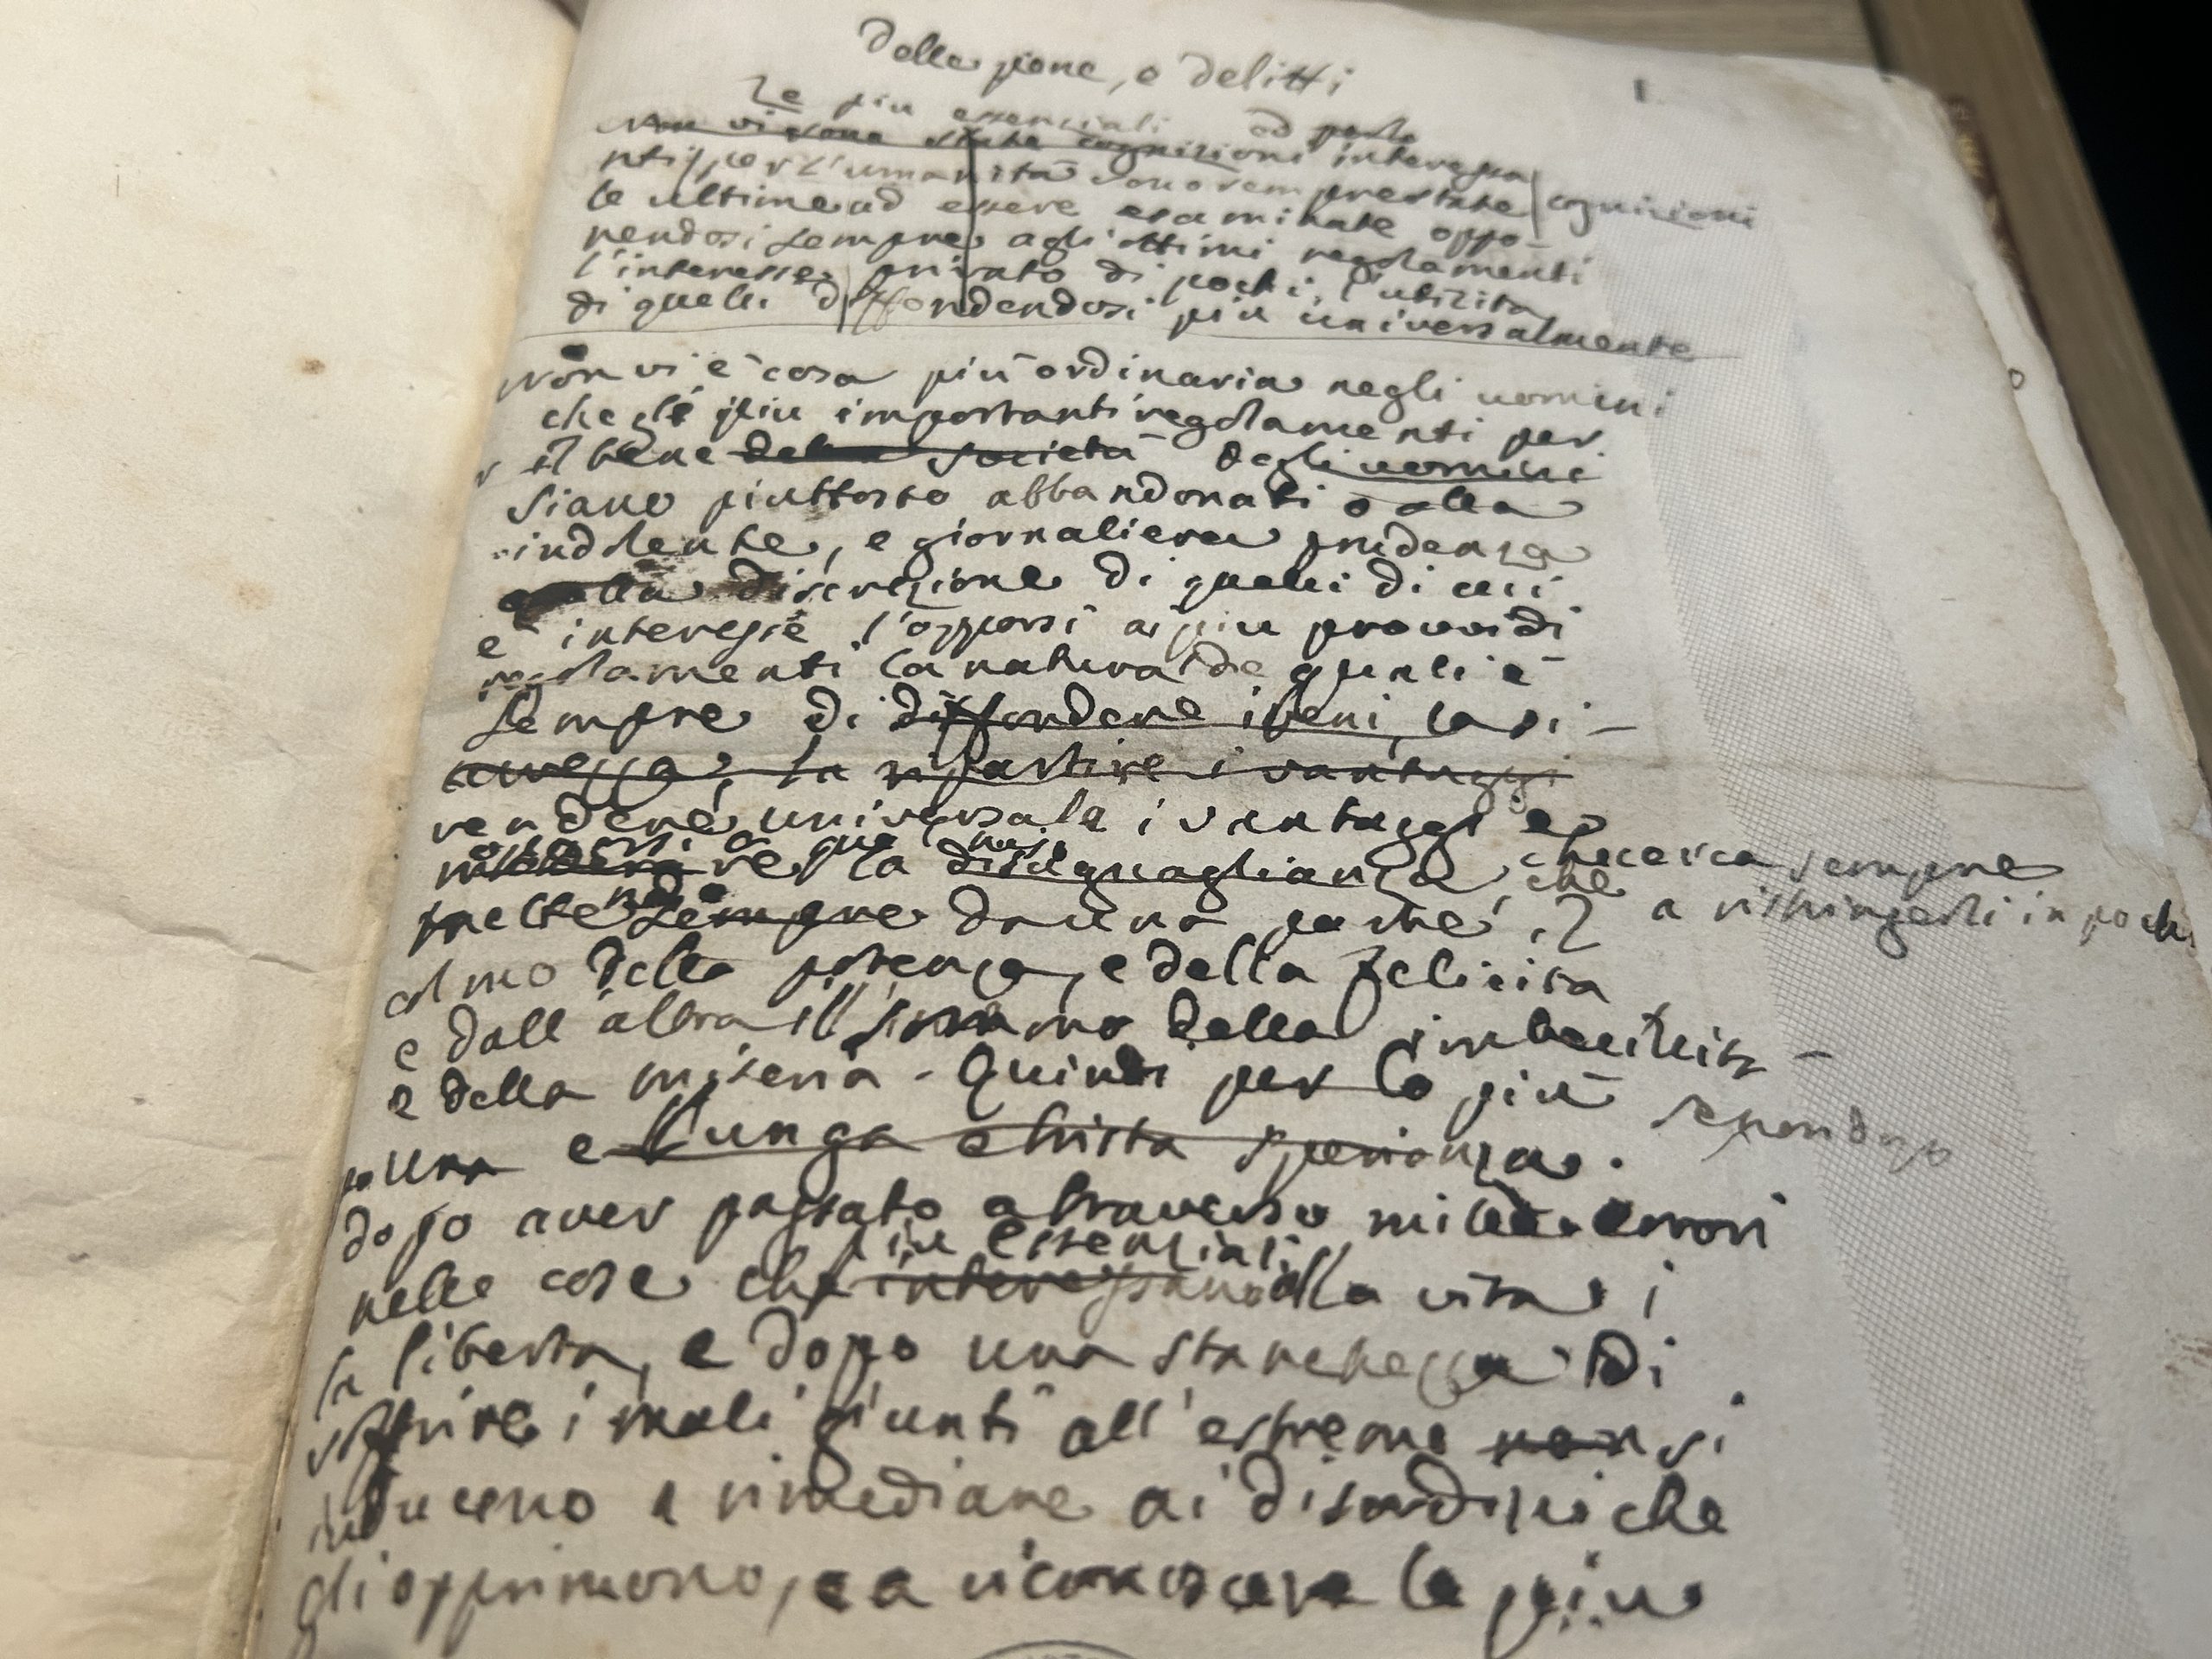 Delle pene, e delitti
1
Le piu essenziali
Non vi sono state cognizioni interessa
nti per l'umanità sono sempre state cognizioni
le ultime ad essere esaminate oppo-
nendosi sempre agli ottimi regolamenti
l'interesse privato di pochi, l'utilità
di quelli diffondendosi più universalmente
Non vi è cosa più ordinaria negli uomini
che gli piu importanti regolamenti per
il bene della società degli uomini
siano piuttosto abbandonati o alla
indolente, e giornaliera prudenza
alla discrezione di quelli di cui
è interesse l'opporsi ai piu provvidi
regolamenti la natura de quali è
sempre di diffondere i beni, la si-
curezza, la ripartire i vantaggi
rendere universale i vantaggi e
re la disuguaglianza che cerca sempre
a ristringerli in pochi
mette sempre da una parte il
colmo della potenza, e della felicita
e dall'altra il sommo della imbecillita
e della miseria. Quindi per lo più
una e lunga e trista sperienza.
dopo aver passato attraverso mille errori
più essenziali
nelle cose che interessano alla vita
la libertà, e dopo una stanchezza di
soffrire i mali giunti all'estremo non si
inducono a rimediare ai disordini che
gli opprimono, e a riconoscere le piu